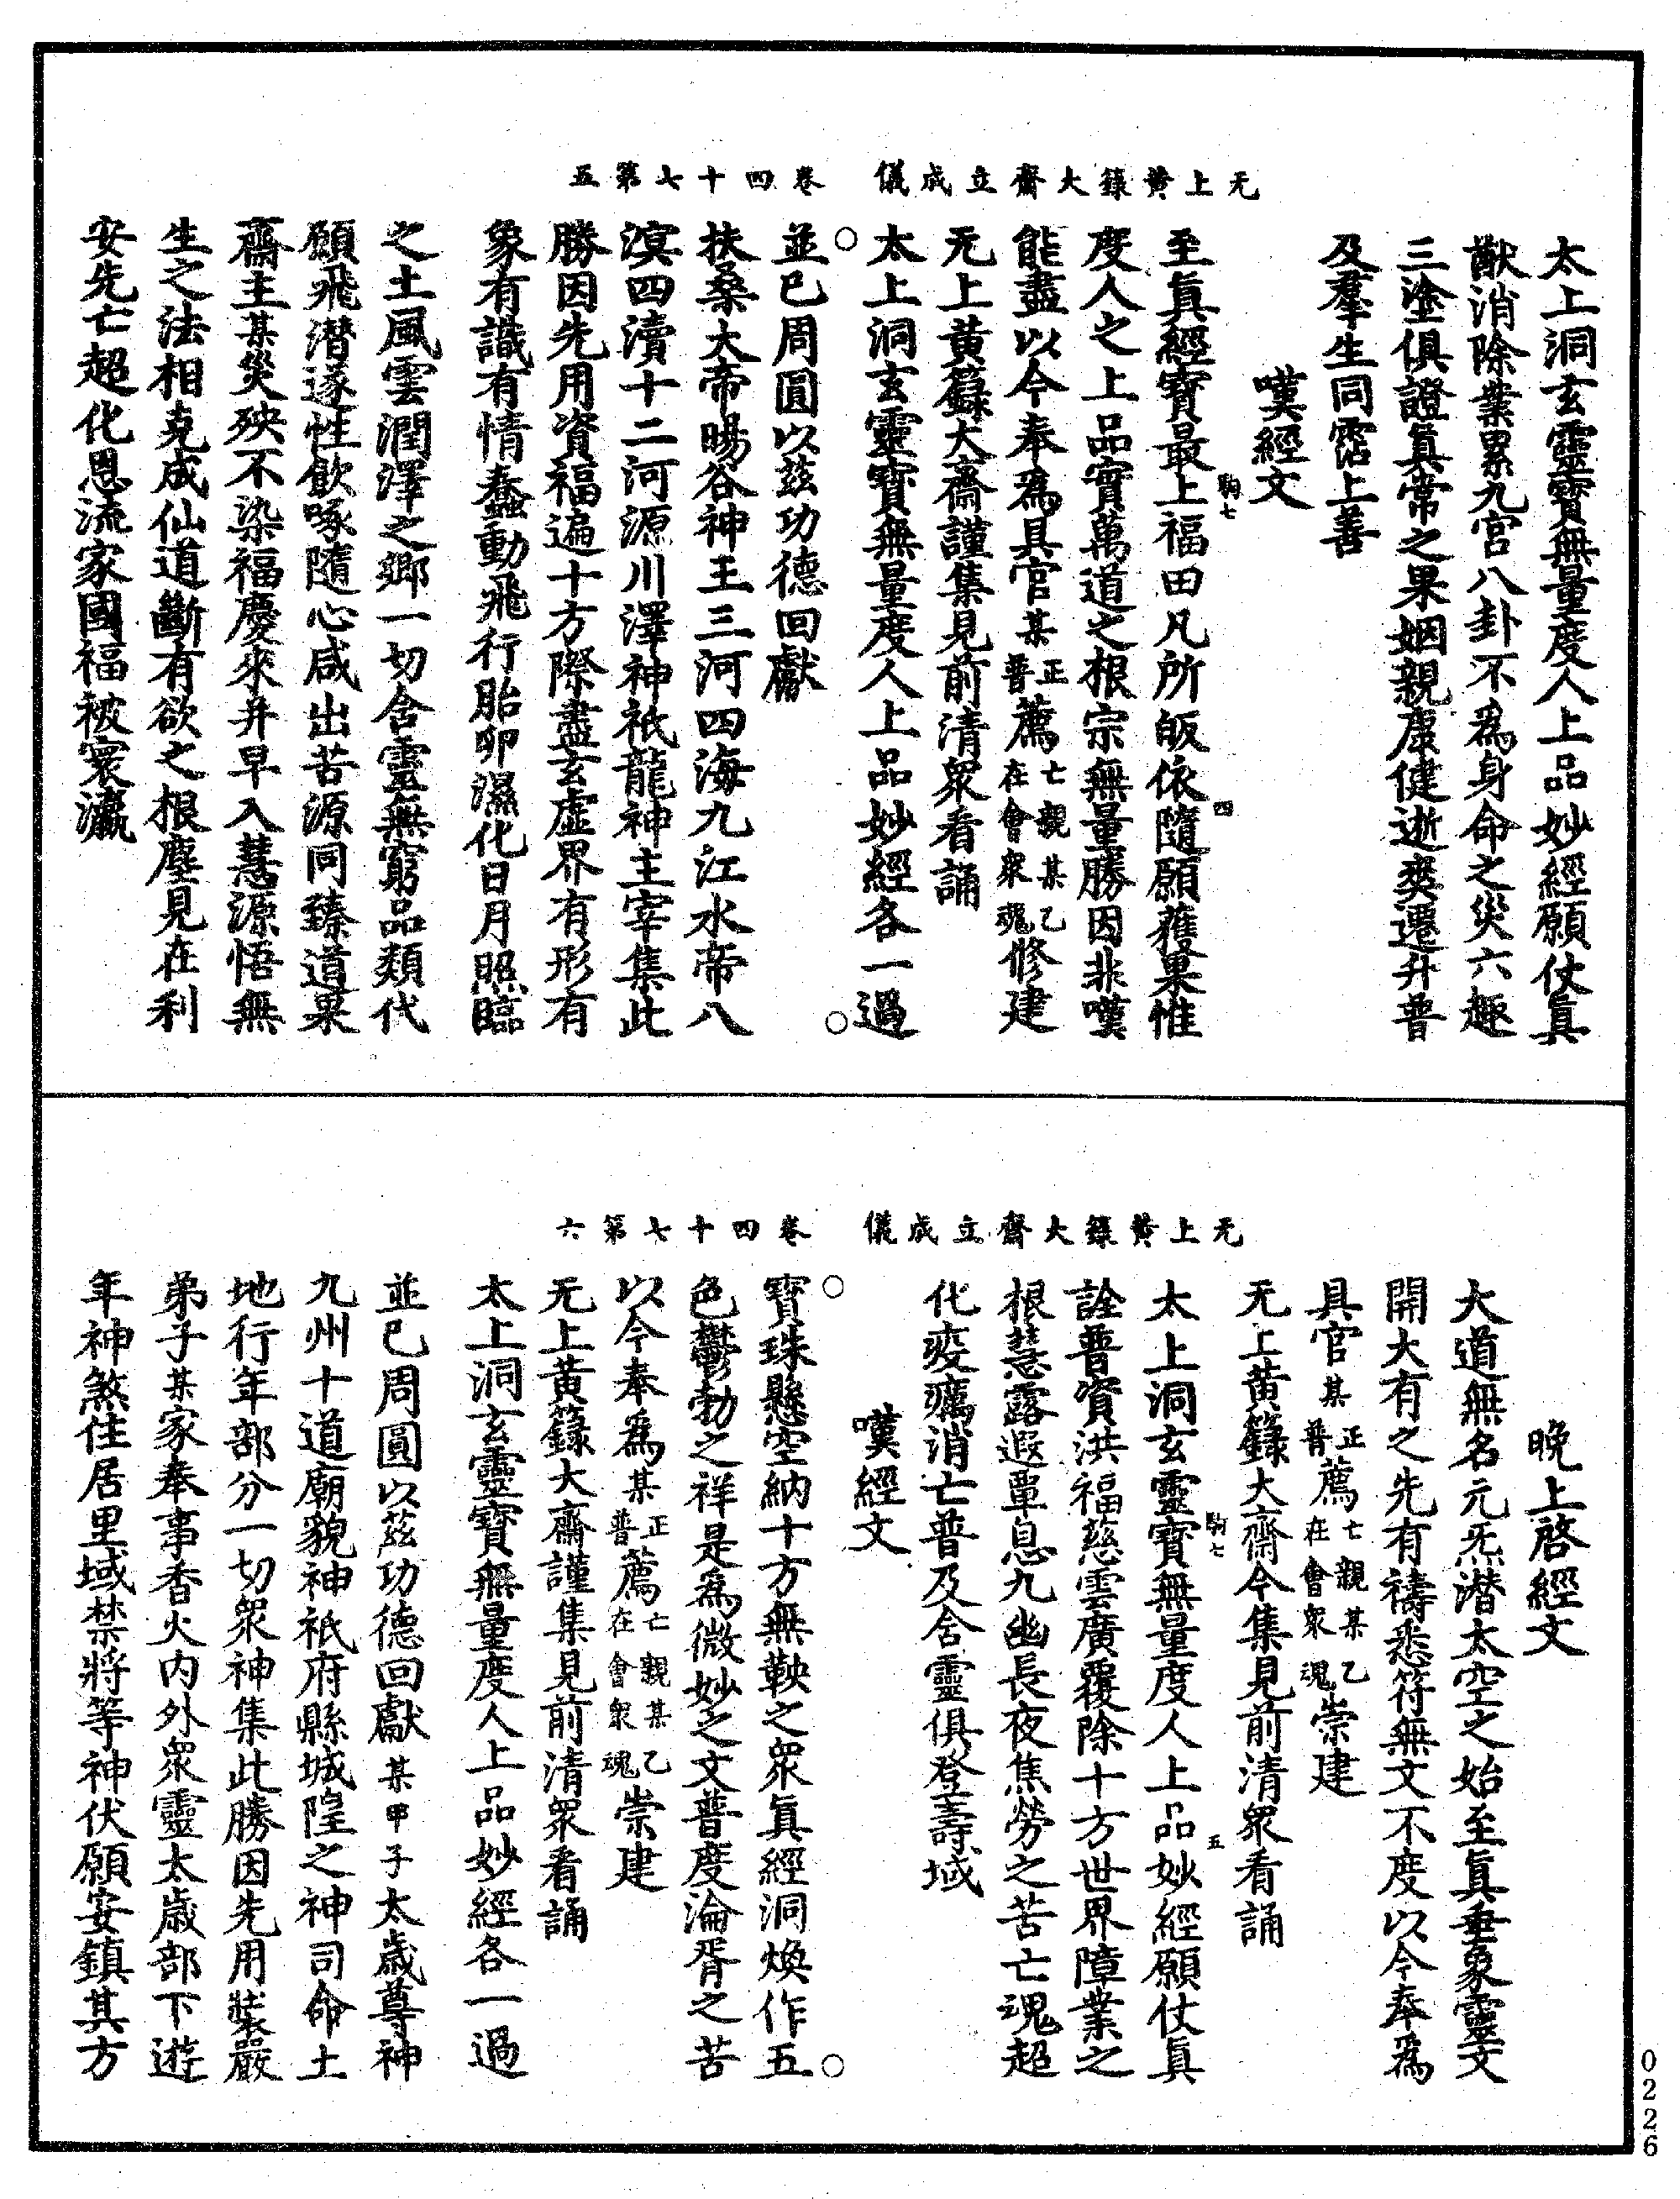 无上黃籙大齋立成儀　卷四十七第五
太上洞玄靈寶無量度人上品妙經願仗眞
猷消除業累九宮八卦不爲身命之災六趣
三塗俱證眞常之果姻親康健逝爽遷升普
及羣生同霑上善
嘆經文
至眞經寶最上福田凡所皈依隨願獲果惟
駒七　四
度人之上品實萬道之根宗無量勝因非嘆
能盡以今奉爲具官某正普薦亡親某乙在會衆魂修建
无上黃籙大齋謹集見前清衆看誦
太上洞玄靈寶無量度人上品妙經各一過
○並已周圓以茲功德回獻○
扶桑大帝暘谷神王三河四海九江水帝八
溟四瀆十二河源川澤神祇龍神主宰集此
勝因先用資福遍十方際盡玄虛界有形有
象有識有情蠢動飛行胎卵濕化日月照臨
之土風雲潤澤之鄉一切含靈無窮品類代
願飛潛遂性飲啄隨心咸出苦源同臻道果
齋主某災殃不染福慶來并早入慧源悟無
生之法相克成仙道斷有欲之根塵見在利
安先亡超化恩流家國福被寰瀛
无上黃籙大齋立成儀　卷四十七第六
晚上啓經文
大道無名元炁潛太空之始至眞垂象靈文
開大有之先有禱悉符無文不度以今奉爲
具官某正普薦亡親某乙在會衆魂崇建
无上黃籙大齋今集見前清衆看誦
駒七　五
太上洞玄靈寶無量度人上品妙經願仗眞
詮普資洪福慈雲廣覆除十方世界障業之
根慧露遐覃息九幽長夜焦勞之苦亡魂超
化疫癘消亡普及含靈俱登壽域
嘆經文
○寶珠懸空納十方無鞅之衆眞經洞煥作五○
色鬱勃之祥是爲微妙之文普度淪胥之苦
以今奉爲某正普薦亡親某乙在會衆魂崇建
无上黃籙大齋謹集見前清衆看誦
太上洞玄靈寶無量度人上品妙經各一過
並已周圓以茲功德回獻某甲子太歲尊神
九州十道廟貌神祇府縣城隍之神司命土
地行年部分一切衆神集此勝因先用裝嚴
弟子某家奉事香火內外衆靈太歲部下遊
年神煞住居里域禁將等神伏願安鎮其方
0226